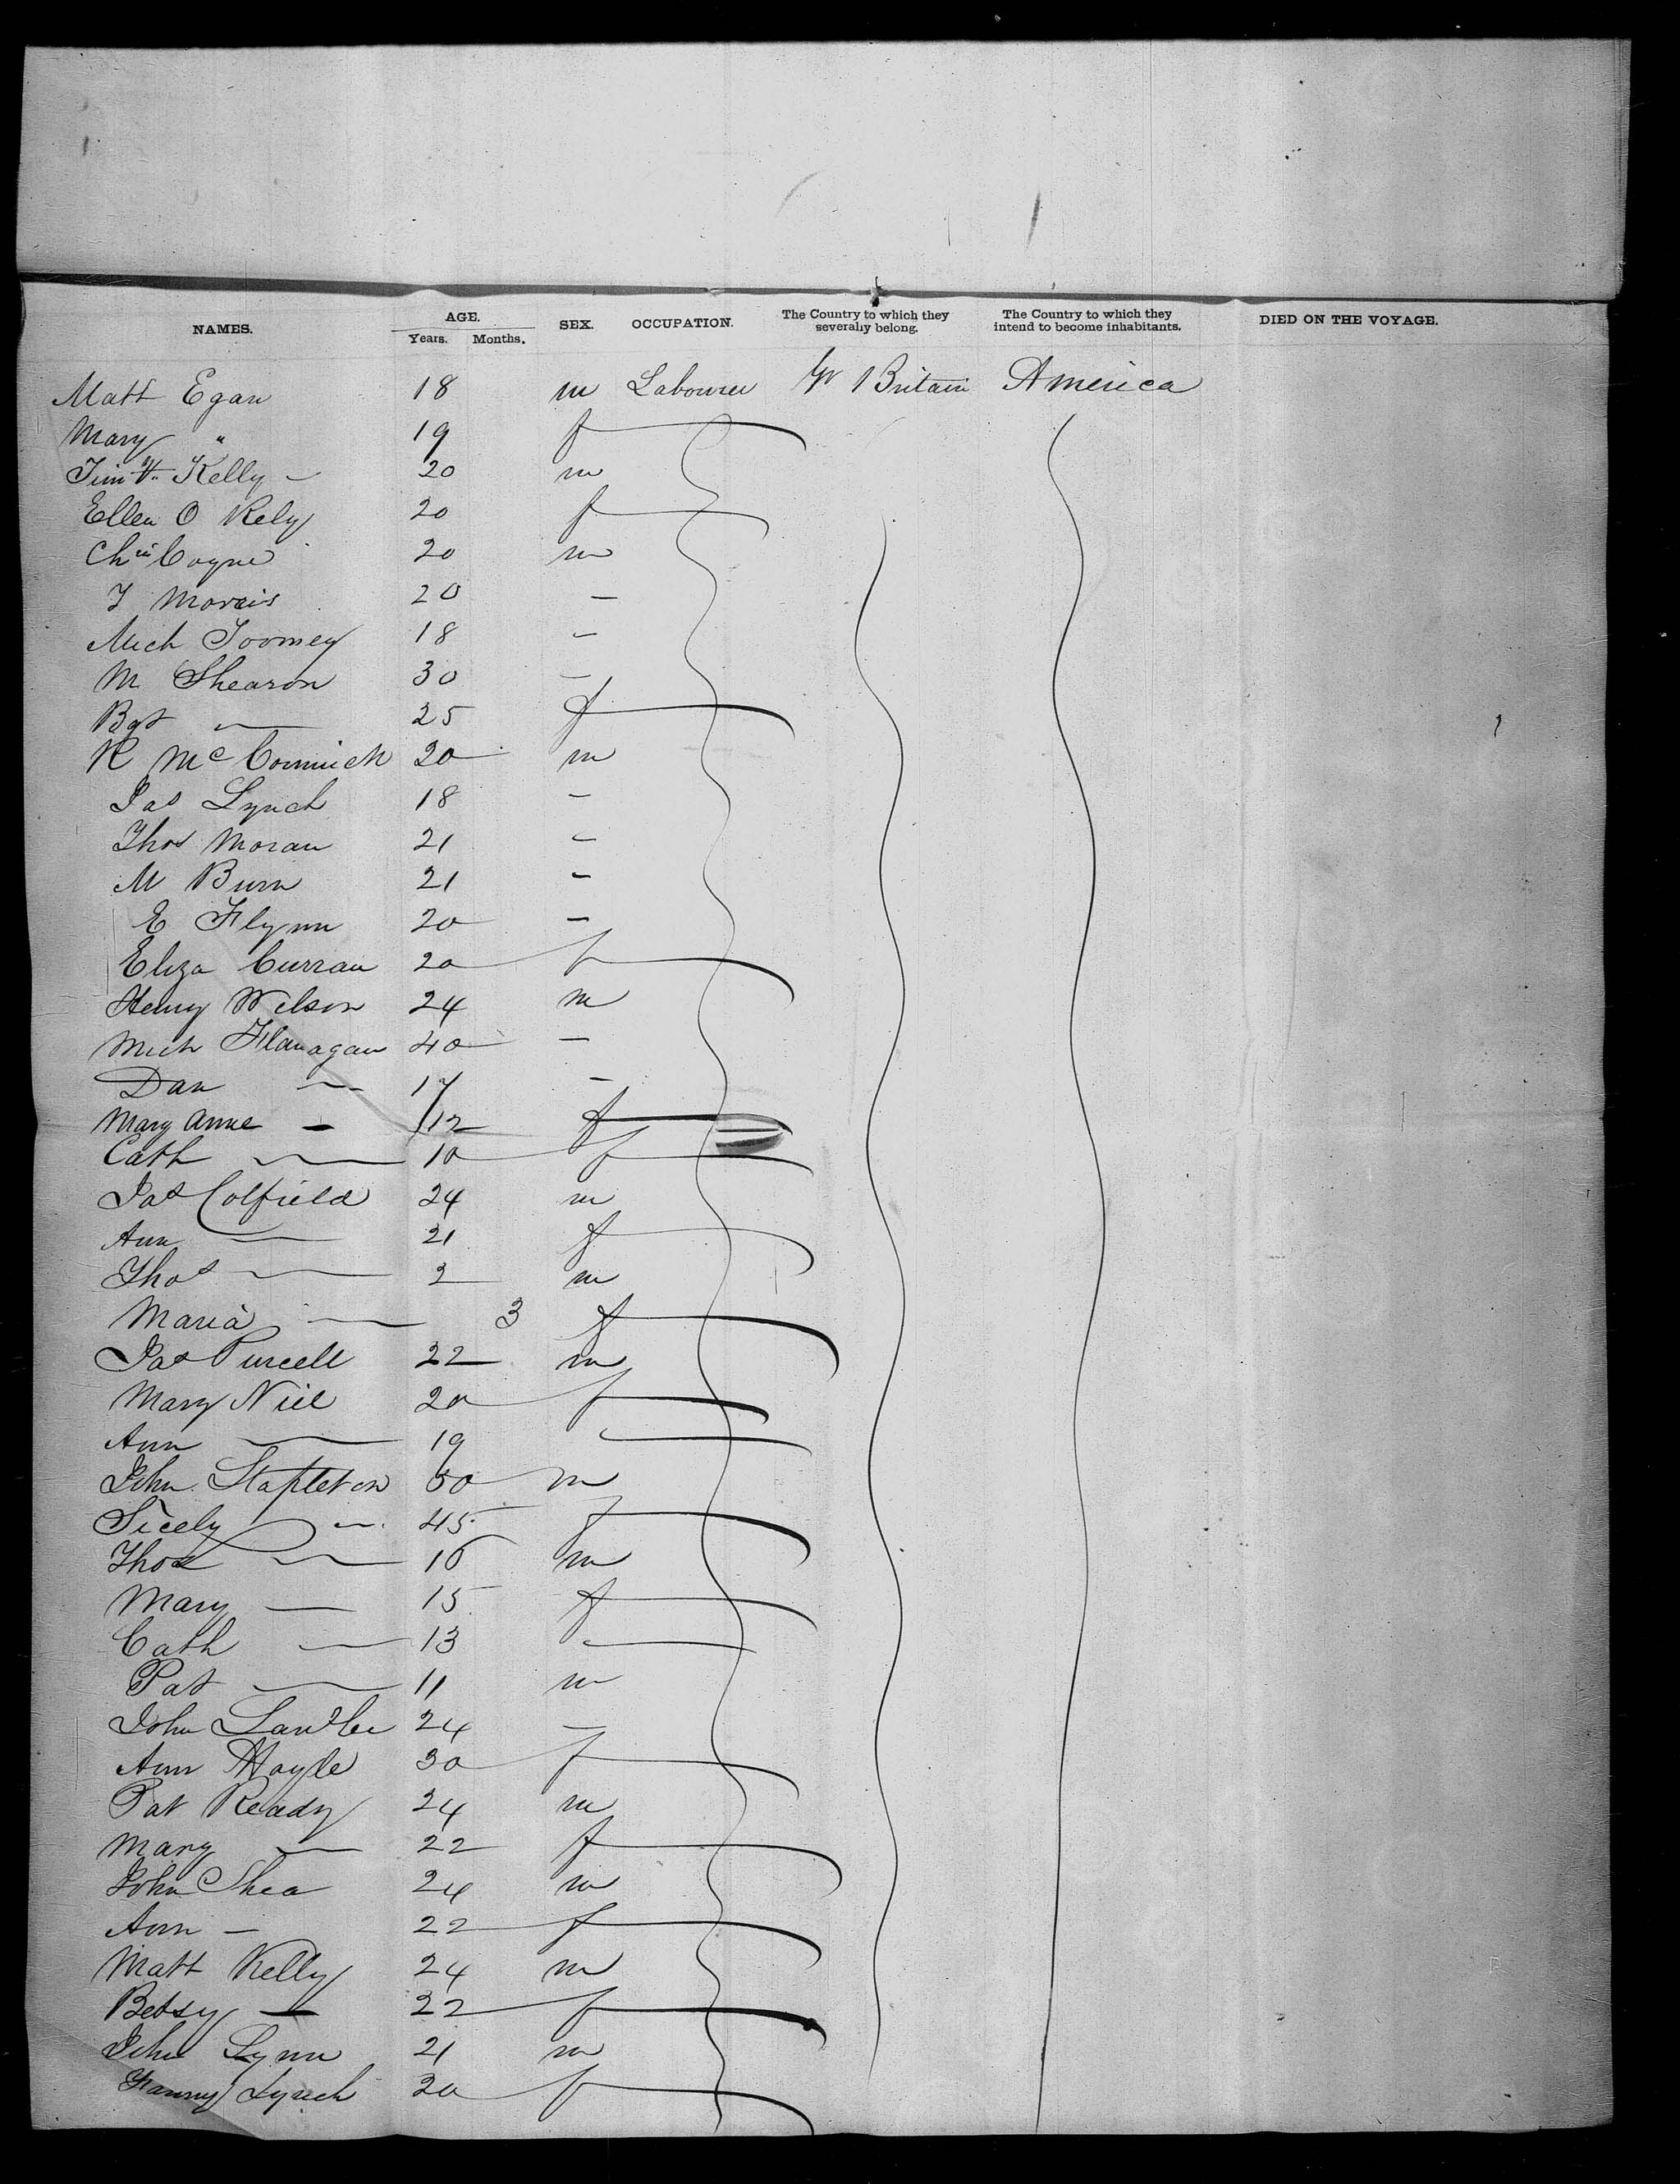 NAMES. AGE. SEX. OCCUPATION. The Country to which they severally belong. The Country to which they intend to become inhabitants. DIED ON THE VOYAGE.
Years. Months.
Matt Egan 18 m Labourer Gr Britain America
Mary " 19 f
Timth Kelly — 20 m
Ellen O Kely 20 f
Chn Coyne 20 m
T Morris 20 —
Mich Toomey 18 —
M Shearon 30 —
Bgt — 25 f
R McCormick 20 m
Jas Lynch 18 —
Thos Moran 21 —
M Burn 21 —
E Flynn 20 —
Eliza Curran 20 f
Henry Wilson 24 m
Mich Flanagan 40 —
Dan — 17 —
Mary Anne — 12 f
Cath — 10 f
Jas Colfield 24 m
Ann — 21 f
Thos — 2 m
Maria — 3 f
Jas Purcell 22 m
Mary Niel 20 f
Ann — 19 —
John Stapleton 50 m
Sicely — 45 f
Thos — 16 m
Mary — 15 f
Cath — 13 —
Pat — 11 m
John 24 —
Ann 30 f
Pat Ready 24 m
Mary — 22 f
John Shea 24 m
Ann — 22 f
Matt Kelly 24 m
Betsy — 22 f
John Lynn 21 m
Fanny Lynch 20 f